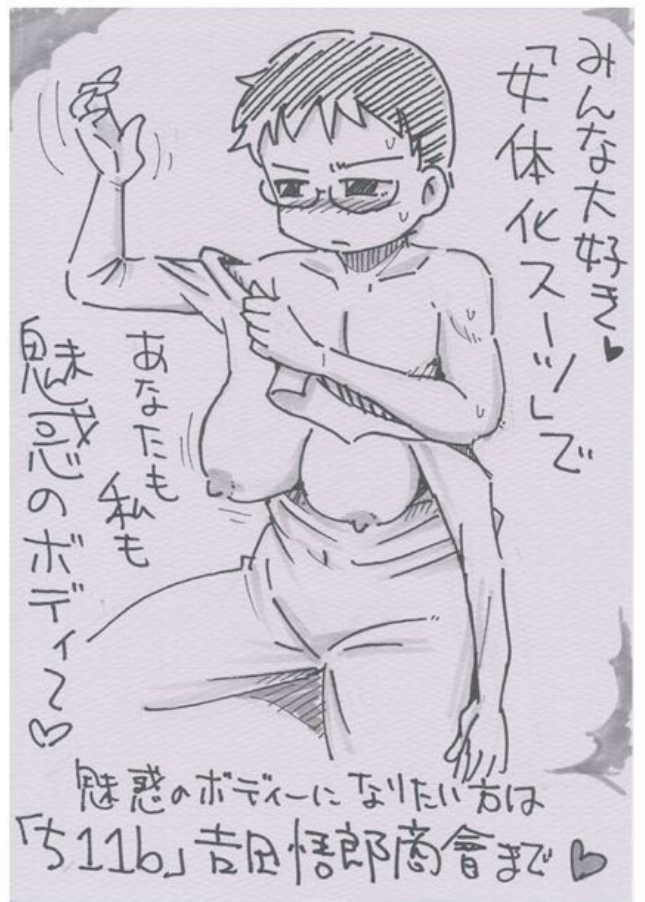 みんな大好き♥
「女体化スーツ」で
あなたも
私も
魅惑のボディ〜♡
魅惑のボディーになりたい方は
「ち11b」吉田悟郎商會まで♥